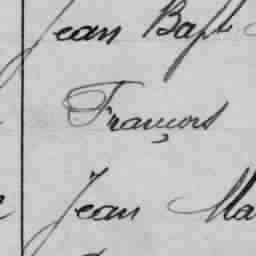 Jean Bapt
François
Jean Ma